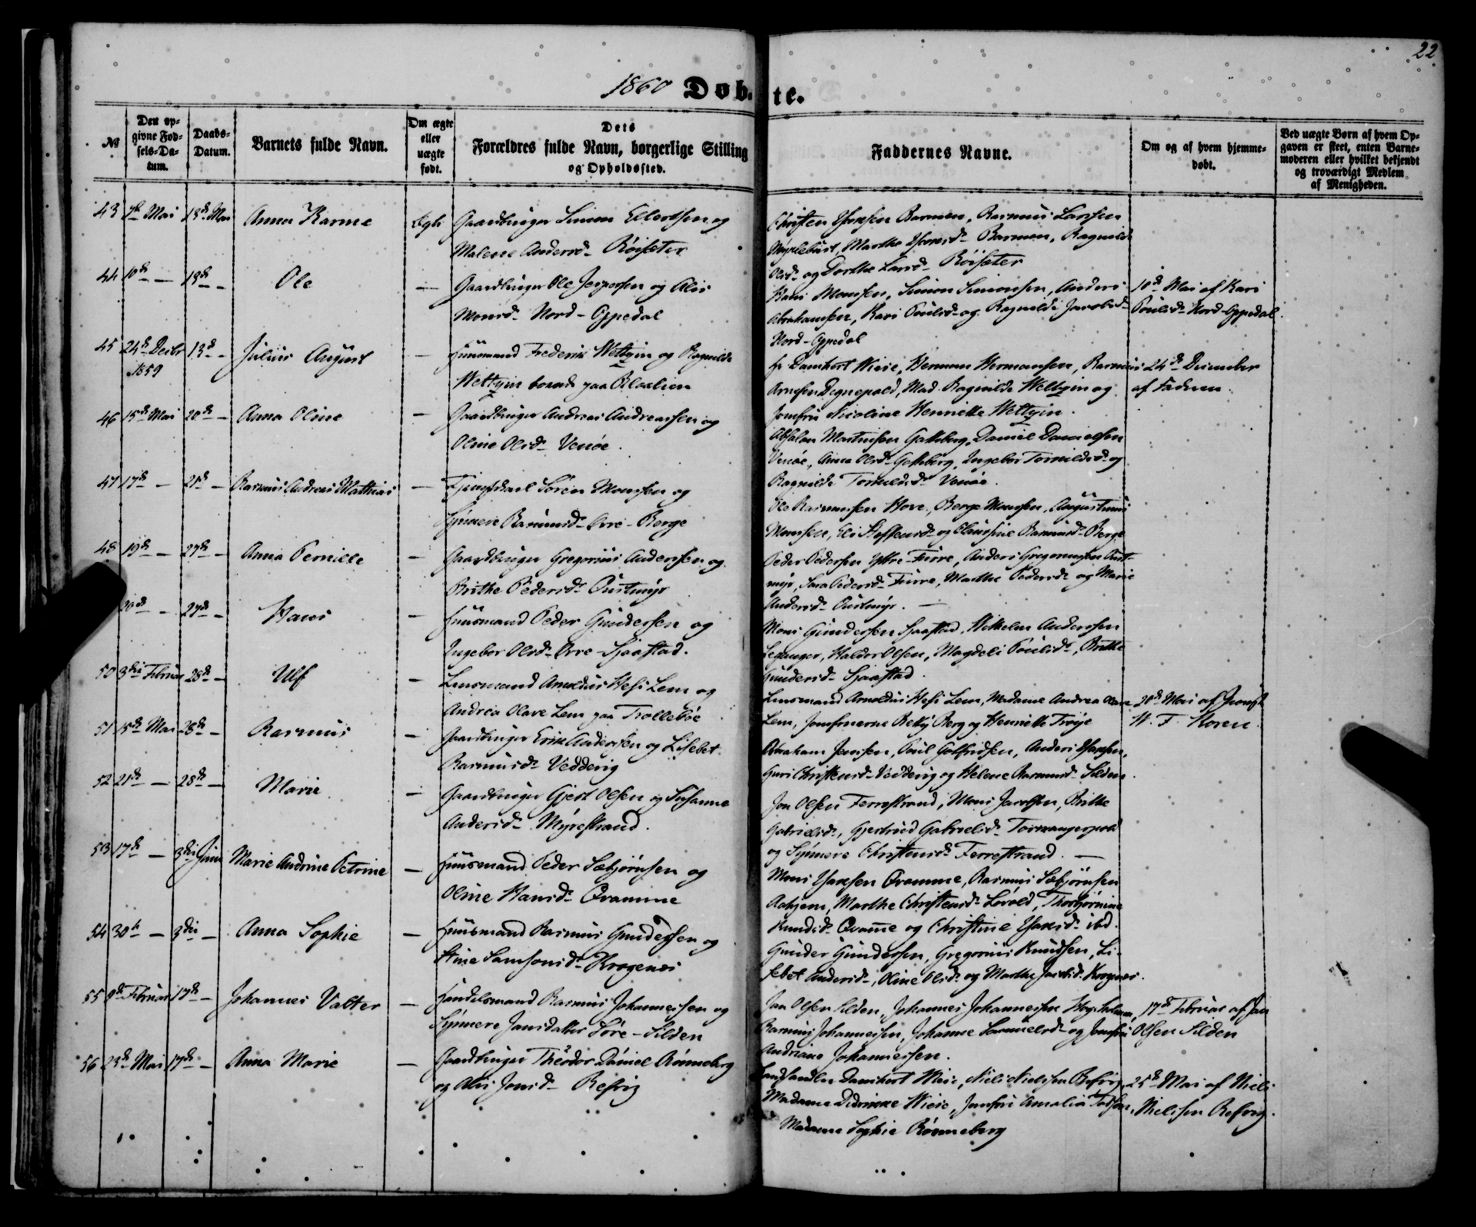 22
1860 Døbte.
№
Den op-
givne Fød-
sels-Da-
tum.
Daabs-
Datum.
Barnets fulde Navn.
Om ægte
eller
uægte
født.
Dets
Forældres fulde Navn, borgerlige Stilling
og Opholdssted.
Faddernes Navne.
Om og af hvem hjemme-
døbt.
Ved uægte Børn af hvem Op-
gaven er skeet, enten Barne-
moderen eller hvilket bekjendt
og troværdigt Medlem
af Menigheden.
43 Mai 18de Mai Anna Karine Ægte Gaardbruger Simon og
Malene Andersd- Røisæter
Christen Barmen, Rasmus Larssen
Martha Barmen, Ragnild
Olsd- og Dorthe Larsd- Røisæter
44 10de — 18de — Ole — Gaardbruger Ole Jespersen og
Monsd- Nord-Oppedal
Hans Monssen, Simon Simonsen, Anders
Abrahamsen, Kari Poulsd- og Ragnilde Jacobsd-
Nord-Oppedal
10de Mai af Kari
Poulsd- Nord-Oppedal
45 24de Decbr 1859 13de — Julius August — Huusmand Frederik Wettgin og Ragnilde
Wettgin boende paa
Dankert Wiese, Herman Hermansen, Rasmus
Arnesen Degnepold, Mad. Ragnilde Wettgin og
Jomfru Nicoline Henriette Wettgin.
24de December
af Faderen
46 15de Mai 20de — Anna Oline — Gaardbruger Andreas Andreassen og
Oline Olsd- Venøe.
Absalon Martinsen Gatheberg, Daniel Danielsen
Venøe, Anna Olsd- Gatheberg, Ingebor og
Ragnilde Venøe.
47 17de — 21de — Rasmus Andreas Mathias — Søren Monssen og
Synneve Rasmusd- Øvre-Berge
Ole Rasmussen Hove, Berge Monssen, Augustinus
Monssen, Eli Steffensd- og Rasmusd- Berge
48 19de — 27de — Anna Pernille — Gaardbruger Gregorius Anderssen og
Brithe Pedersd- Rustmyr
Peder Pederssen Ytre-Furre, Anders Gregoriussen Rust-
myr, Sara Pedersd- Furre, Marthe Pedersd- og Marie
Andersd- Rustmyr. —
20de — 27de — Hans — Huusmand Peder Gunderssen og
Ingebor Olsd- Øvre-Sjaastad.
Mons Gunderssen Sjaastad, Wilhelm Anderssen
Haldor Olsen, Magdeli Poulsd-, Brithe
Gundersd- Sjaastad
50 3die Februar 28de — Ulf — Lensmand Arnoldus Hess Lem og
Andrea Olave Lem paa Trollebøe
Lensmand Arnoldus Hess Lem, Madame Andrea Olave
Lem, Jomfruerne Betsy Berg og Henriette Frøye
20de Mai af Jomfr
W. F. Koren.
51 15de Mai 28de — Rasmus — Gaardbruger Erik Anderssen og Lisebet
Rasmusd- Vedderig
Abraham Jenssen, Poul Anders
Guri Christensd- Vedderig og Helene Rasmusd- Silden.
52 21de — 28de — Marie — Gaardbruger Gjert Olsen og Susanne
Andersd- Myrestrand.
Jon Olsen Ferrestrand, Mons Jacobsen, Brithe
Gabrielsd-, Gjertrud Gabrielsd- Tormangerpold
og Synneve Christensd- Ferrestrand. —
53 17de — 3die Juni Marie Andrine Petrine — Huusmand Peder Sæbjørnsen og
Oline Hansd- Qvamme
Mons Qvamme, Rasmus Sæbjørnsen
Marthe Christensd- Løvold, Thorbjørnine
Knudsd- Qvamme og Christine ibd.
54 30te — 3die — Anna Sophie — Huusmand Rasmus Gunderssen og
Stine Samsonsd- Krogenes
Gunder Gunderssen, Gregorius Knudssen, Li-
sebet Andersd-, Oline Olsd- og Marthe Jacobsd- Krogenes.
55 9de Februar 17de — Johannes Vatter — Handelsmand Rasmus Johannessen og
Synneve Jonsdatter Søre-Silden
Jon Olsen Silden, Johannes Johannessen Høgholmen,
Rasmus Johannessen, Johanne Samuelsd- og Jomfru
Andriane Johannessen.
17de Februar af Jon
Olsen Silden
56 25de Mai 17de — Anna Marie — Gaardbruger Theodor Daniel Rønneberg
og Jonsd- Refvig
Landhandler Dankert Wiese, Niels Nielsen Refvig,
Madame Didrikke Wiese, Jomfru Amalia
Madame Sophie Rønneberg
25de Mai af Niels
Nielssen Refvig.